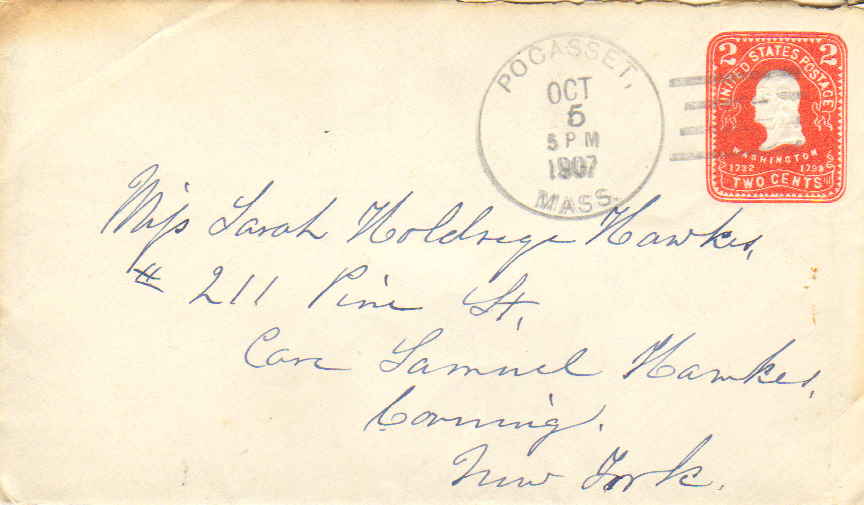 POCASSET,
OCT
5
5 PM
1907
MASS.
2 2
UNITED STATES POSTAGE
WASHINGTON
1732 1799
TWO CENTS
Miss Sarah Holdrege Hawkes,
# 211 Pine St,
Care Samuel Hawkes,
Corning,
New York.